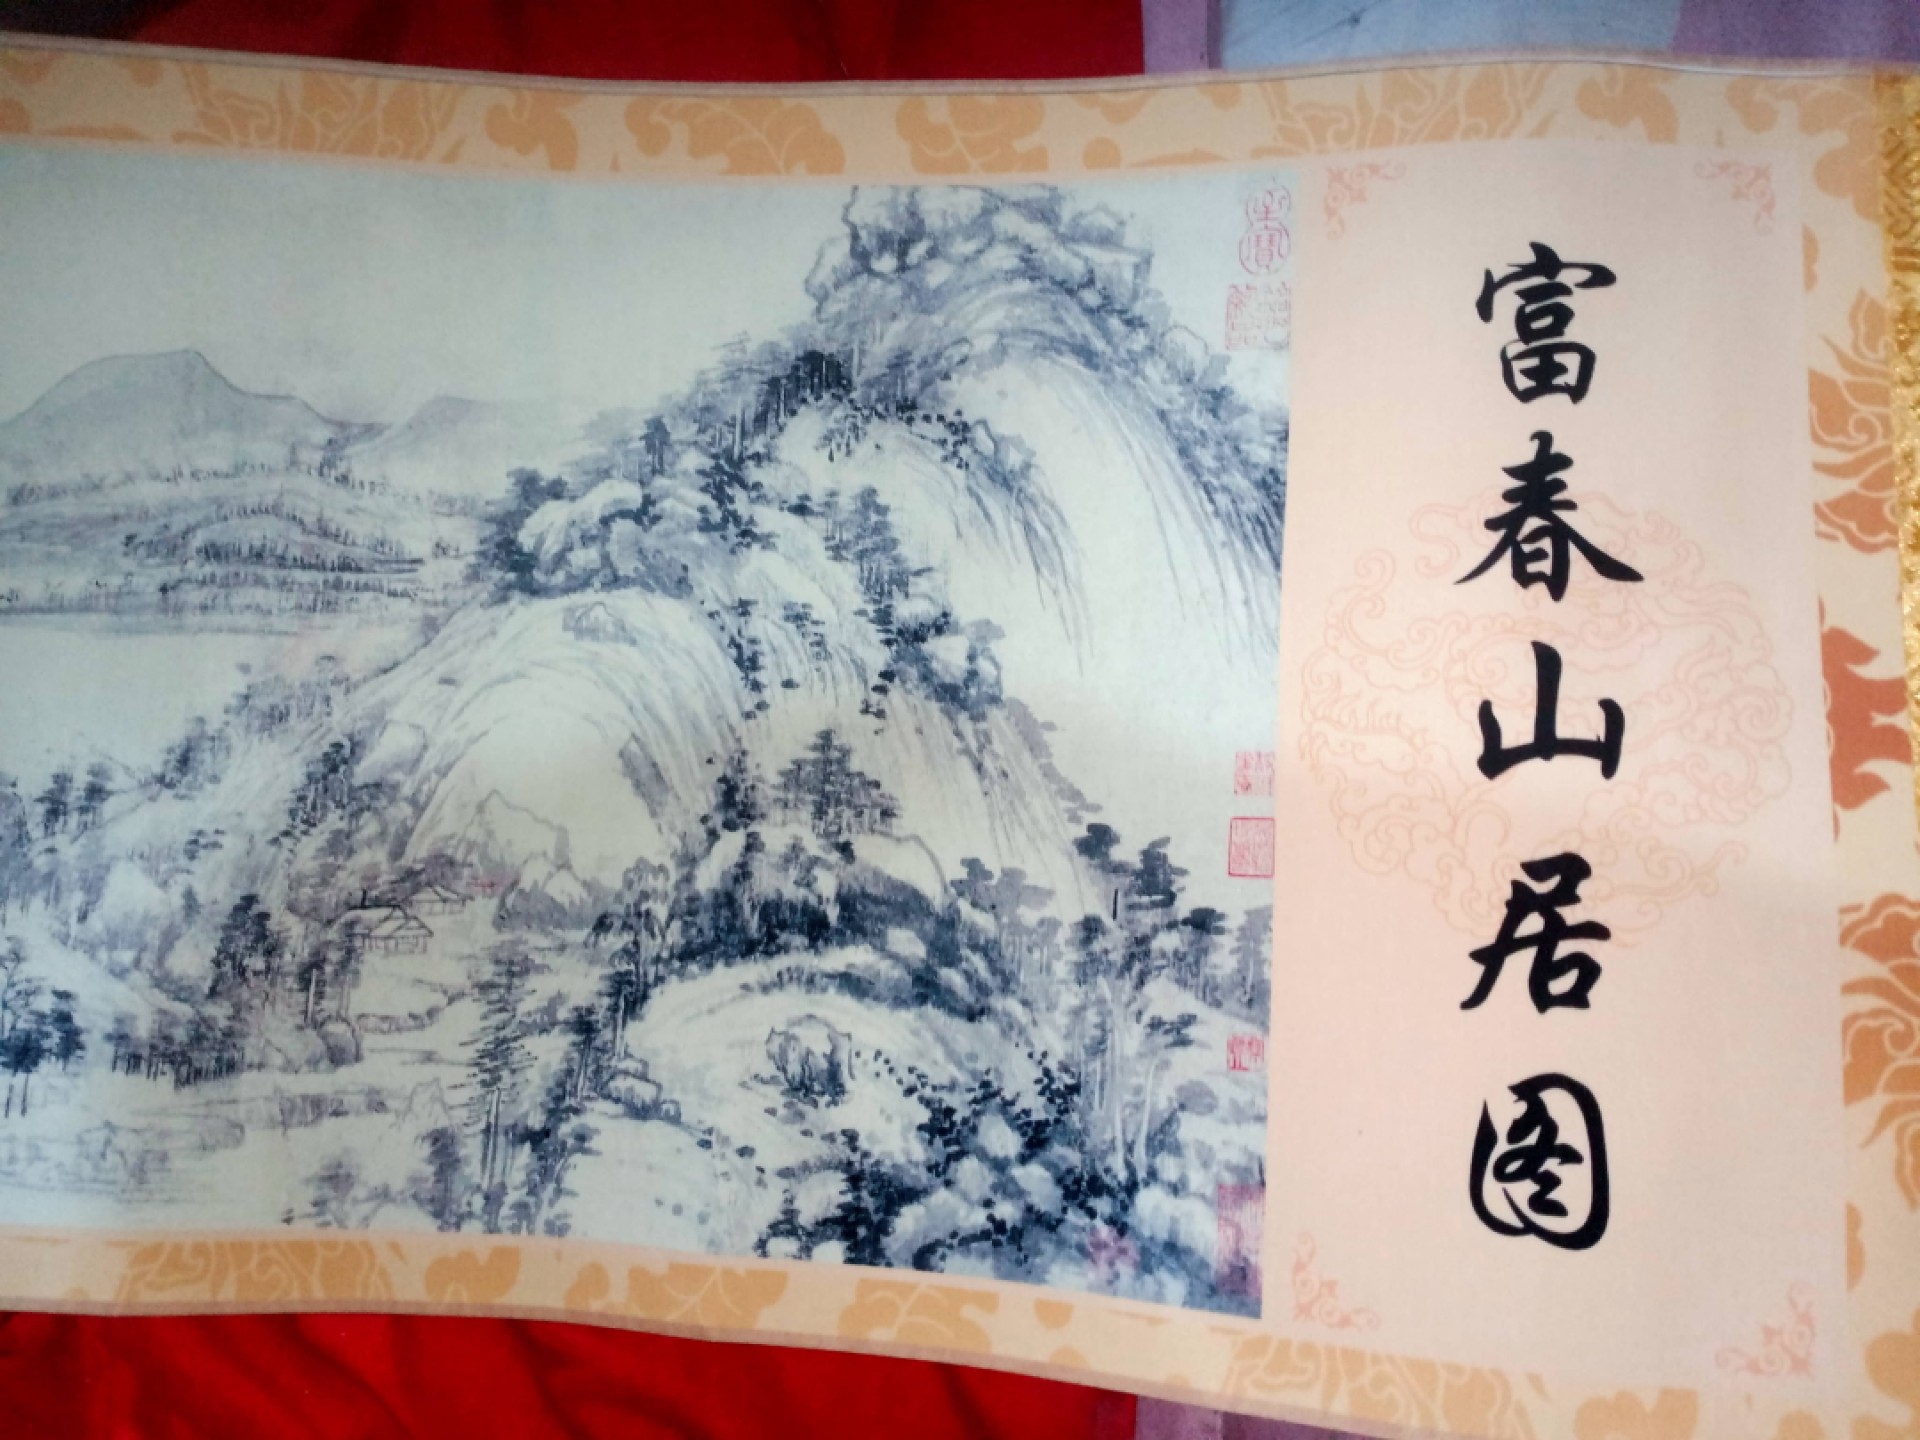 富春山居图